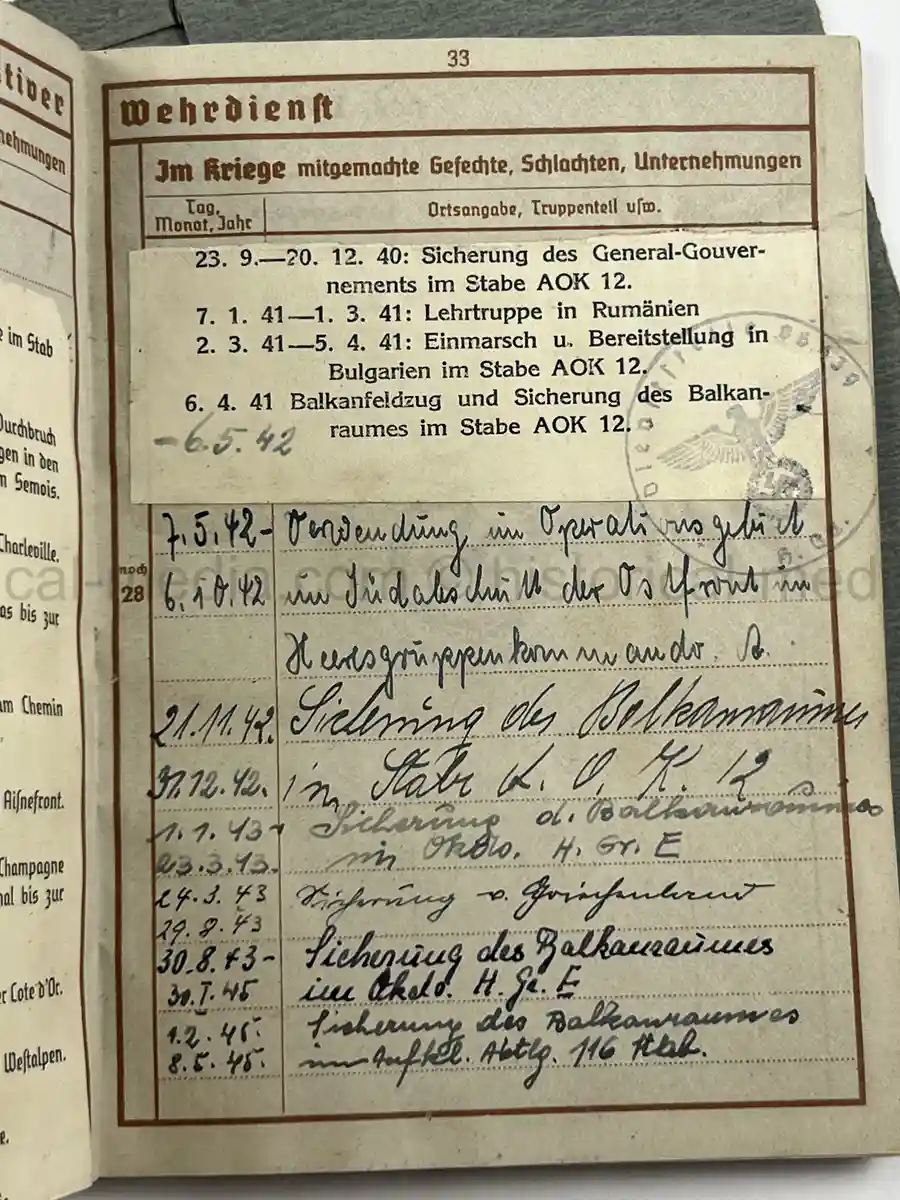 33
tiver
Wehrdienst
nehmungen
Im Kriege mitgemachte Gefechte, Schlachten, Unternehmungen
Tag, Monat, Jahr
Ortsangabe, Truppenteil usw.
23. 9.—20. 12. 40: Sicherung des General-Gouver-
nements im Stabe AOK 12.
7. 1. 41—1. 3. 41: Lehrtruppe in Rumänien
2. 3. 41—5. 4. 41: Einmarsch u. Bereitstellung in
Bulgarien im Stabe AOK 12.
6. 4. 41 Balkanfeldzug und Sicherung des Balkan-
– 6.5.42 raumes im Stabe AOK 12.
Dienststelle 05539
B. Nr.
7.5.42- Verwendung im Operationsgebiet
noch 28
6.10.42 im Südabschnitt der Ostfront im
Heeresgruppenkommando A.
21.11.42. Sicherung des Balkanraumes
31.12.42. im Stabe A. O. K. 12
1.1.43- Sicherung d. Balkanraumes
23.3.43. im Okdo. H. Gr. E
24.3.43 Sicherung v. Griechenland
29.8.43
30.8.43- Sicherung des Balkanraumes
30.I.45 im Okdo. H. Gr. E
1.2.45. Sicherung des Balkanraumes
8.5.45. im Aufkl. Abtlg. 116
e im Stab
Durchbruch
gen in den
m Semois.
Charleville.
as bis zur
am Chemin
Aisnefront.
Champagne
nal bis zur
r Cote d'Or.
Westalpen.
e.